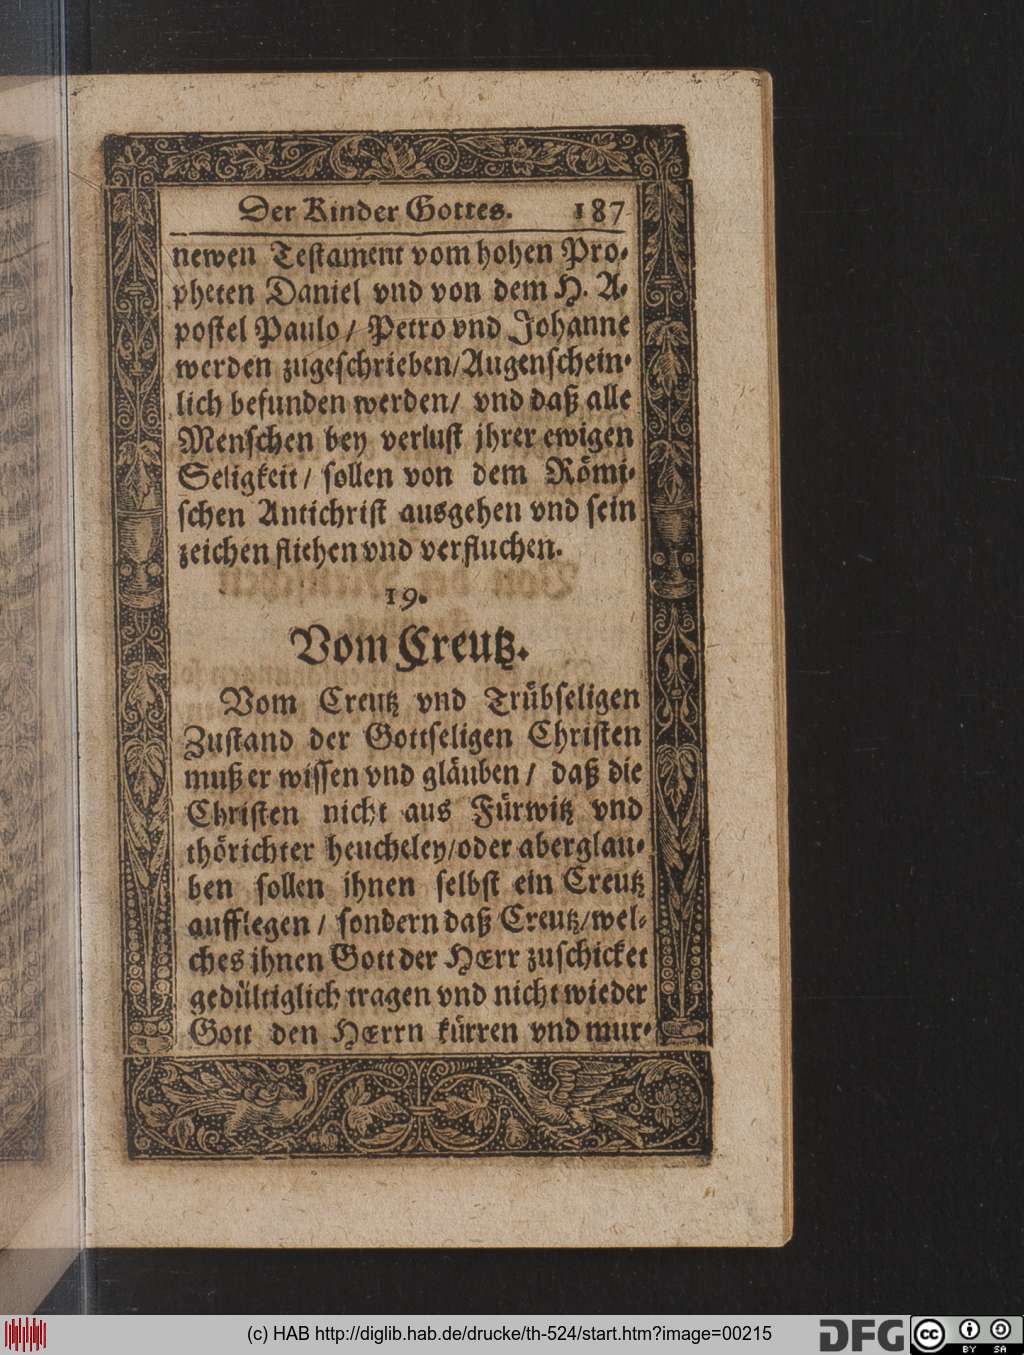 Der Kinder Gottes. 187
newen Testament vom hohen Pro-
pheten Daniel vnd von dem H. A-
postel Paulo/ Petro vnd Johanne
werden zugeschrieben/Augenschein-
lich befunden werden/ vnd daß alle
Menschen bey verlust jhrer ewigen
Seligkeit/ sollen von dem Römi-
schen Antichrist ausgehen vnd sein
zeichen fliehen vnd verfluchen.
19.
Vom Creutz.
Vom Creutz vnd Trübseligen
Zustand der Gottseligen Christen
muß er wissen vnd gläuben/ daß die
Christen nicht aus Fürwitz vnd
thörichter heucheley/oder aberglau-
ben sollen ihnen selbst ein Creutz
aufflegen/ sondern daß Creutz/wel-
ches ihnen Gott der HErr zuschicket
gedültiglich tragen vnd nicht wieder
Gott den HErrn kürren vnd mur-
(c) HAB http://diglib.hab.de/drucke/th-524/start.htm?image=00215
DFG
cc BY SA